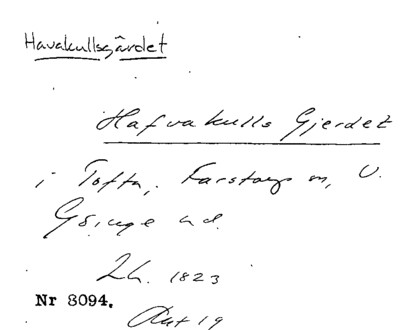 Havakullsgärdet
Hafvakulls Gjerdet
i Tofta, Farstorps sn, V.
Göinge hd.
Lh. 1823
Nr 8094.
Akt 19